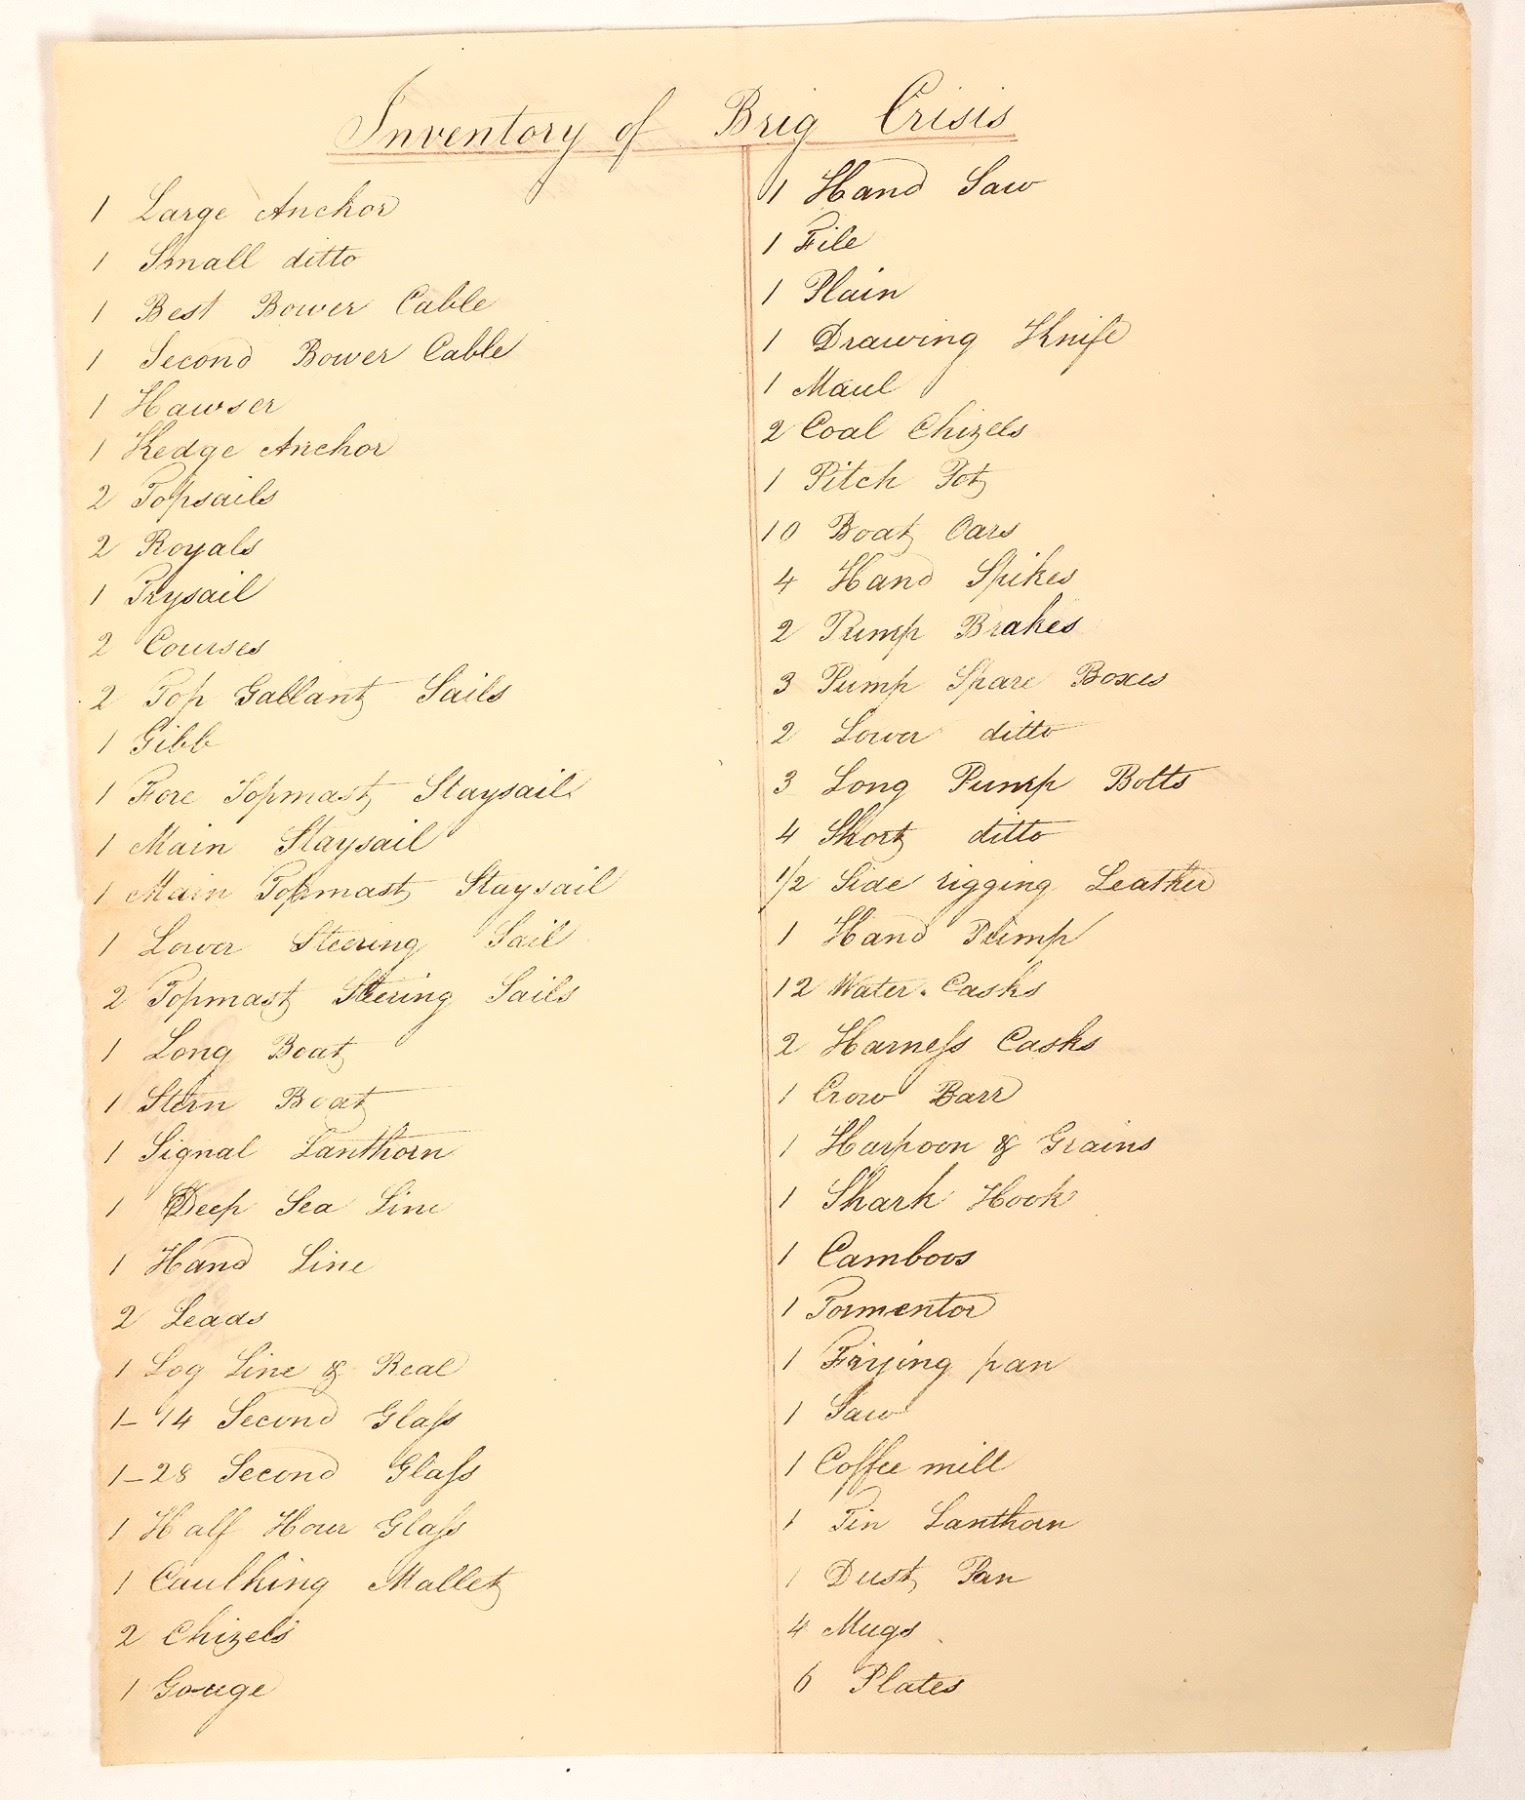 Inventory of Brig Crisis
1 Large Anchor
1 Small ditto
1 Best Bower Cable
1 Second Bower Cable
1 Hawser
1 Kedge Anchor
2 Topsails
2 Royals
1 Trysail
2 Courses
2 Top Gallant Sails
1 Gibb
1 Fore Topmast Staysail
1 Main Staysail
1 Main Topmast Staysail
1 Lower Steering Sail
2 Topmast Steering Sails
1 Long Boat
1 Stern Boat
1 Signal Lanthorn
1 Deep Sea Line
1 Hand Line
2 Leads
1 Log Line & Real
1-14 Second Glass
1-28 Second Glass
1 Half Hour Glass
1 Caulking Mallet
2 Chizels
1 Gouge
1 Hand Saw
1 File
1 Plain
1 Drawing Knife
1 Maul
2 Coal Chizels
1 Pitch Pot
10 Boat Oars
4 Hand Spikes
2 Pump Brakes
3 Pump Spare Boxes
2 Lower ditto
3 Long Pump Bolts
4 Short ditto
1/2 Side rigging Leather
1 Hand Pump
12 Water Casks
2 Harness Casks
1 Crow Barr
1 Harpoon & Grains
1 Shark Hook
1 Camboos
1 Tormentor
1 Frying pan
1 Saw
1 Coffee mill
1 Tin Lanthorn
1 Dust Pan
4 Mugs
6 Plates